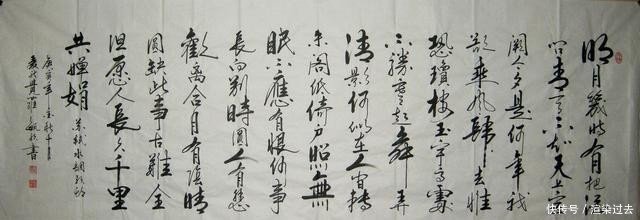 明月幾時有把酒
问青天不知天上宫
阙今夕是何年我
欲乘风归去惟
恐瓊樓玉宇高處
不勝寒起舞弄
清影何似在人间轉
朱阁低绮户照無
眠不應有恨何事
長向别時圆人有悲
歡離合月有陰晴
圆缺此事古難全
但愿人長久千里
共嬋娟 苏轼水调歌頭
庚寅年金秋
書
快传号/渲染过去